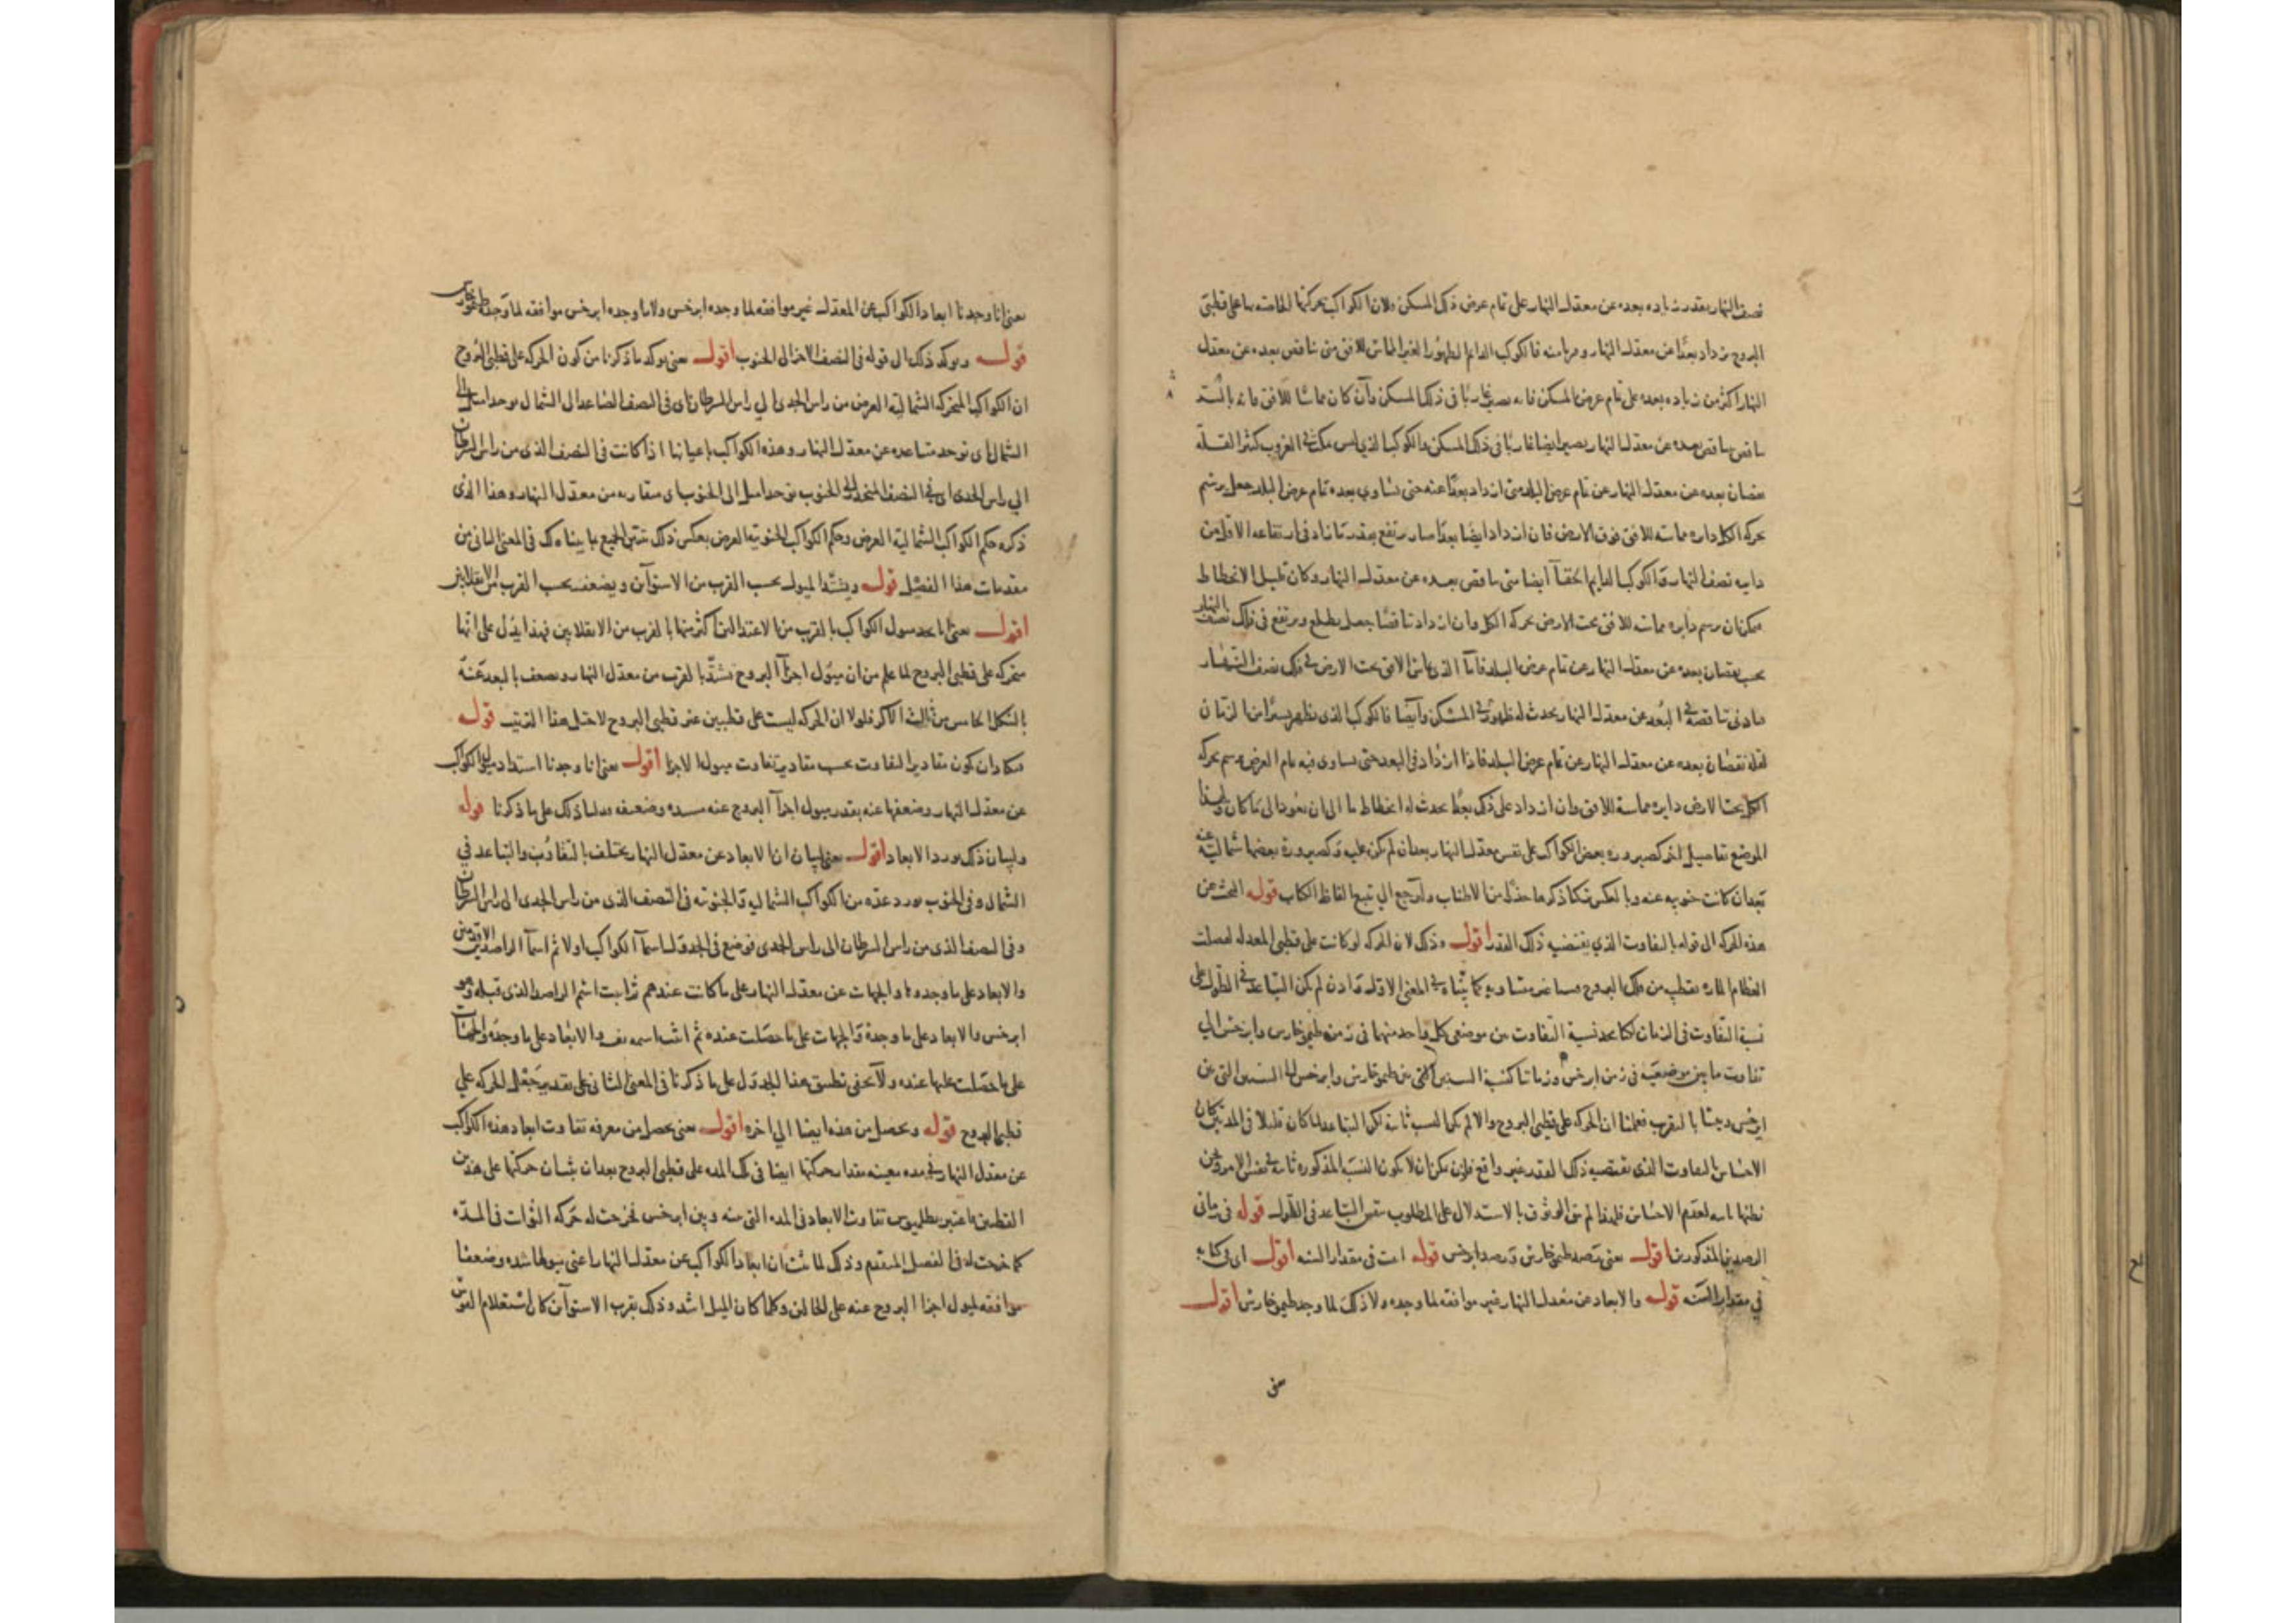 نصف النهار بقدر زياده بعده عن معدل النهار على تمام عرض ذلك المسكن ولان الكواكب بحركتها الخاصة بها على قطبى
البروج يزداد بعدا عن معدل النهار فالكوكب الدايم الظهور الغير المماس للافق من تناقص بعده عن معدل
النهار اكثر من زياده بعده على تمام عرض المسكن فانه يصير غاربا فى ذلك المسكن وان كان مماسا للافق فانه
تناقص بعده عن معدل النهار يصير ايضا غاربا فى ذلك المسكن والكوكب الذى ليس مكث فى الغروب كثير القلة
نقصان بعده عن معدل النهار عن تمام عرض البلد متى ازداد بعدا عنه حتى تساوى بعده تمام عرض البلد جعل يرسم
بحركة الكل دايره مماسه للافق فوق الارض فان ازداد ايضا بعدا صار يرتفع بقدر ما زاد فى ارتفاعه الاقل من
دايره نصف النهار والكوكب الدايم الخفآ ايضا متى تناقص بعده عن معدل النهار وكان قليل الانحطاط
يمكن ان يرسم دايره مماسه للافق تحت الارض بحركة الكل وان ازداد تناقصا جعل يطلع ويرتفع فى فلك نصف النهار
بحسب نقصان بعده عن معدل النهار عن تمام عرض البلد فاما الذى يماس الافق تحت الارض فى فلك نصف النهار
فادنى تناقصه فى البعد عن معدل النهار يحدث له ظهور فى المسكن وايضا فالكوكب الذى يظهر يسيرا من الزمان
لقله نقصان بعده عن معدل النهار عن تمام عرض البلد فاذا ازداد فى البعد حتى يساوى فيه تمام العرض يرسم بحركه
الكل تحت الارض دايره مماسة للافق وان ازداد على ذلك بعدا يحدث له انحطاط ما الى ان يعود الى ما كان ولهذا
الموضع تفاصيل اخر كصيروره بعض الكواكب على نفس معدل النهار بعد ان لم يكن عليه وكصيرورة بعضها شمالية عنه
بعد ان كانت جنوبيه عنه وبالعكس تركنا ذكرها حذرا من الاطناب ولنرجع الى تتبع الفاظ الكتاب قوله البحث عن
هذه الحركه الى قوله بالتفاوت الذى يقتضيه ذلك القدر اقول وذلك لان الحركه لو كانت على قطبى المعدل لفصلت
العظام الماره بقطبيه من فلك البروج قسيا غير متساويه كما بيناه فى المعنى الاول واذن لم يكن التباعد فى الطول على
نسبة التفاوت فى الزمان لكنا نجد نسبة التفاوت من موضعى كل واحد منهما فى زمن طيموخارس وابرخس الى
تفاوت ما بين موضعيه فى زمن ابرخس وزماننا كنسبة السنين التى بين طيموخارس وابرخس الى السنين التى بين
ابرخس وبيننا بالتقريب فعلمنا ان الحركه على قطبى البروج والا لم يكن النسب ثابته لكن التباعد لما كان قليلا فى المدتين كان
الاحساس بالتفاوت الذى يقتضيه ذلك القدر غير واقع فاذن يمكن ان لا يكون النسبة المذكوره ثابته فى نفس الامر ونحن
نظنها ثابته لعدم الاحساس فلهذا لم يبق الوثوق بالاستدلال على المطلوب بنفس التباعد فى الطول قوله فى زمانى
الرصدين المذكورين اقول يعنى رصد طيموخارس ورصد ابرخس قوله فى مقدار السنه اقول اى فى كتابه
فى مقدار السنه قوله والابعاد عن معدل النهار غير موافقه لما وجده ولا ذلك لما وجد طيموخارس اقول
يعنى
يعنى انا وجدنا ابعاد الكواكب عن المعدل غير موافقه لما وجده ابرخس ولا ما وجده ابرخس موافقه لما وجده طيموخارس
قوله ويوكد ذلك الى قوله فى النصف الاخر الى الجنوب اقول يعنى يوكد ما ذكرنا من كون الحركه على قطبى البروج
ان الكواكب المتحركه الشماليه العرض من راس الجدى الى راس السرطان اى فى النصف الصاعد الى الشمال يوجد اميل الى
الشمال اى توجد متباعده عن معدل النهار وهذه الكواكب باعيانها اذا كانت فى النصف الذى من راس السرطان
الى راس الجدى اى فى النصف المنحدر الى الجنوب يوجد اميل الى الجنوب اى متقاربه من معدل النهار وهذا الذى
ذكره حكم الكواكب الشمالية العرض وحكم الكواكب الجنوبية العرض بعكس ذلك تبين الجميع بما بيناه لك فى المعنى الثانى من
مقدمات هذا الفصل قوله ويشتد الميول بحسب القرب من الاستوآين ويضعف بحسب القرب من الانقلابين
اقول يعنى انا نجد ميول الكواكب بالقرب من الاعتدالين اكثر منها بالقرب من الانقلابين فهذا يدل على انها
متحركه على قطبى البروج لما علم من ان ميول اجزآ البروج تشتد بالقرب من معدل النهار ويضعف بالبعد عنه
بالشكل الخامس من ثالثة الاكر فلولا ان الحركه ليست على قطبين غير قطبى البروج لاختل هذا الترتيب قوله
فكاد ان يكون مقادير التفاوت بحسب مقادير تفاوت ميول الاجزا اقول يعنى انا وجدنا اشتداد ميول الكواكب
عن معدل النهار وضعفها عنه بقدر ميول اجزآ البروج عنه شده وضعفا فدلنا ذلك على ما ذكرنا قوله
ولبيان ذلك نورد الابعاد اقول يعنى لبيان ان الابعاد عن معدل النهار يختلف بالتقارب والتباعد فى
الشمال وفى الجنوب نورد عدة من الكواكب الشماليه والجنوبيه فى النصف الذى من راس الجدى الى راس السرطان
وفى النصف الذى من راس السرطان الى راس الجدى فوضع فى الجدول اسمآ الكواكب اولا ثم اسمآ الراصدين الاقدمين
والابعاد على ما وجدوها والجهات عن معدل النهار على ما كانت عندهم ثم اثبت اسم الراصد الذى قبله وهو
ابرخس والابعاد على ما وجدة والجهات على ما حصلت عنده ثم اثبت اسم نفسه والابعاد على ما وجده والجهات
على ما حصلت عليها عنده ولا يخفى تطبيق هذا الجدول على ما ذكرنا فى المعنى الثانى على تقدير جعل الحركه على
قطبى البروج قوله ويحصل من هذه ايضا الى اخره اقول يعنى يحصل من معرفه تفاوت ابعاد هذه الكواكب
عن معدل النهار فى مده معينه مقدار حركتها ايضا فى تلك المده على قطبى البروج بعد ان بان حركتها على هذين
القطبين فاعتبر بطلميوس تفاوت الابعاد فى المده التى بينه وبين ابرخس فخرجت له حركه الثوابت فى المدة
كما خرجت له فى الفصل المتقدم وذلك لما ثبت ان ابعاد الكواكب عن معدل النهار اعنى ميولها شده وضعفا
موافقه لميول اجزا البروج عنه على الحالين وكلما كان الميل اشد وذلك بقرب الاستوآين كان استعلام القوس